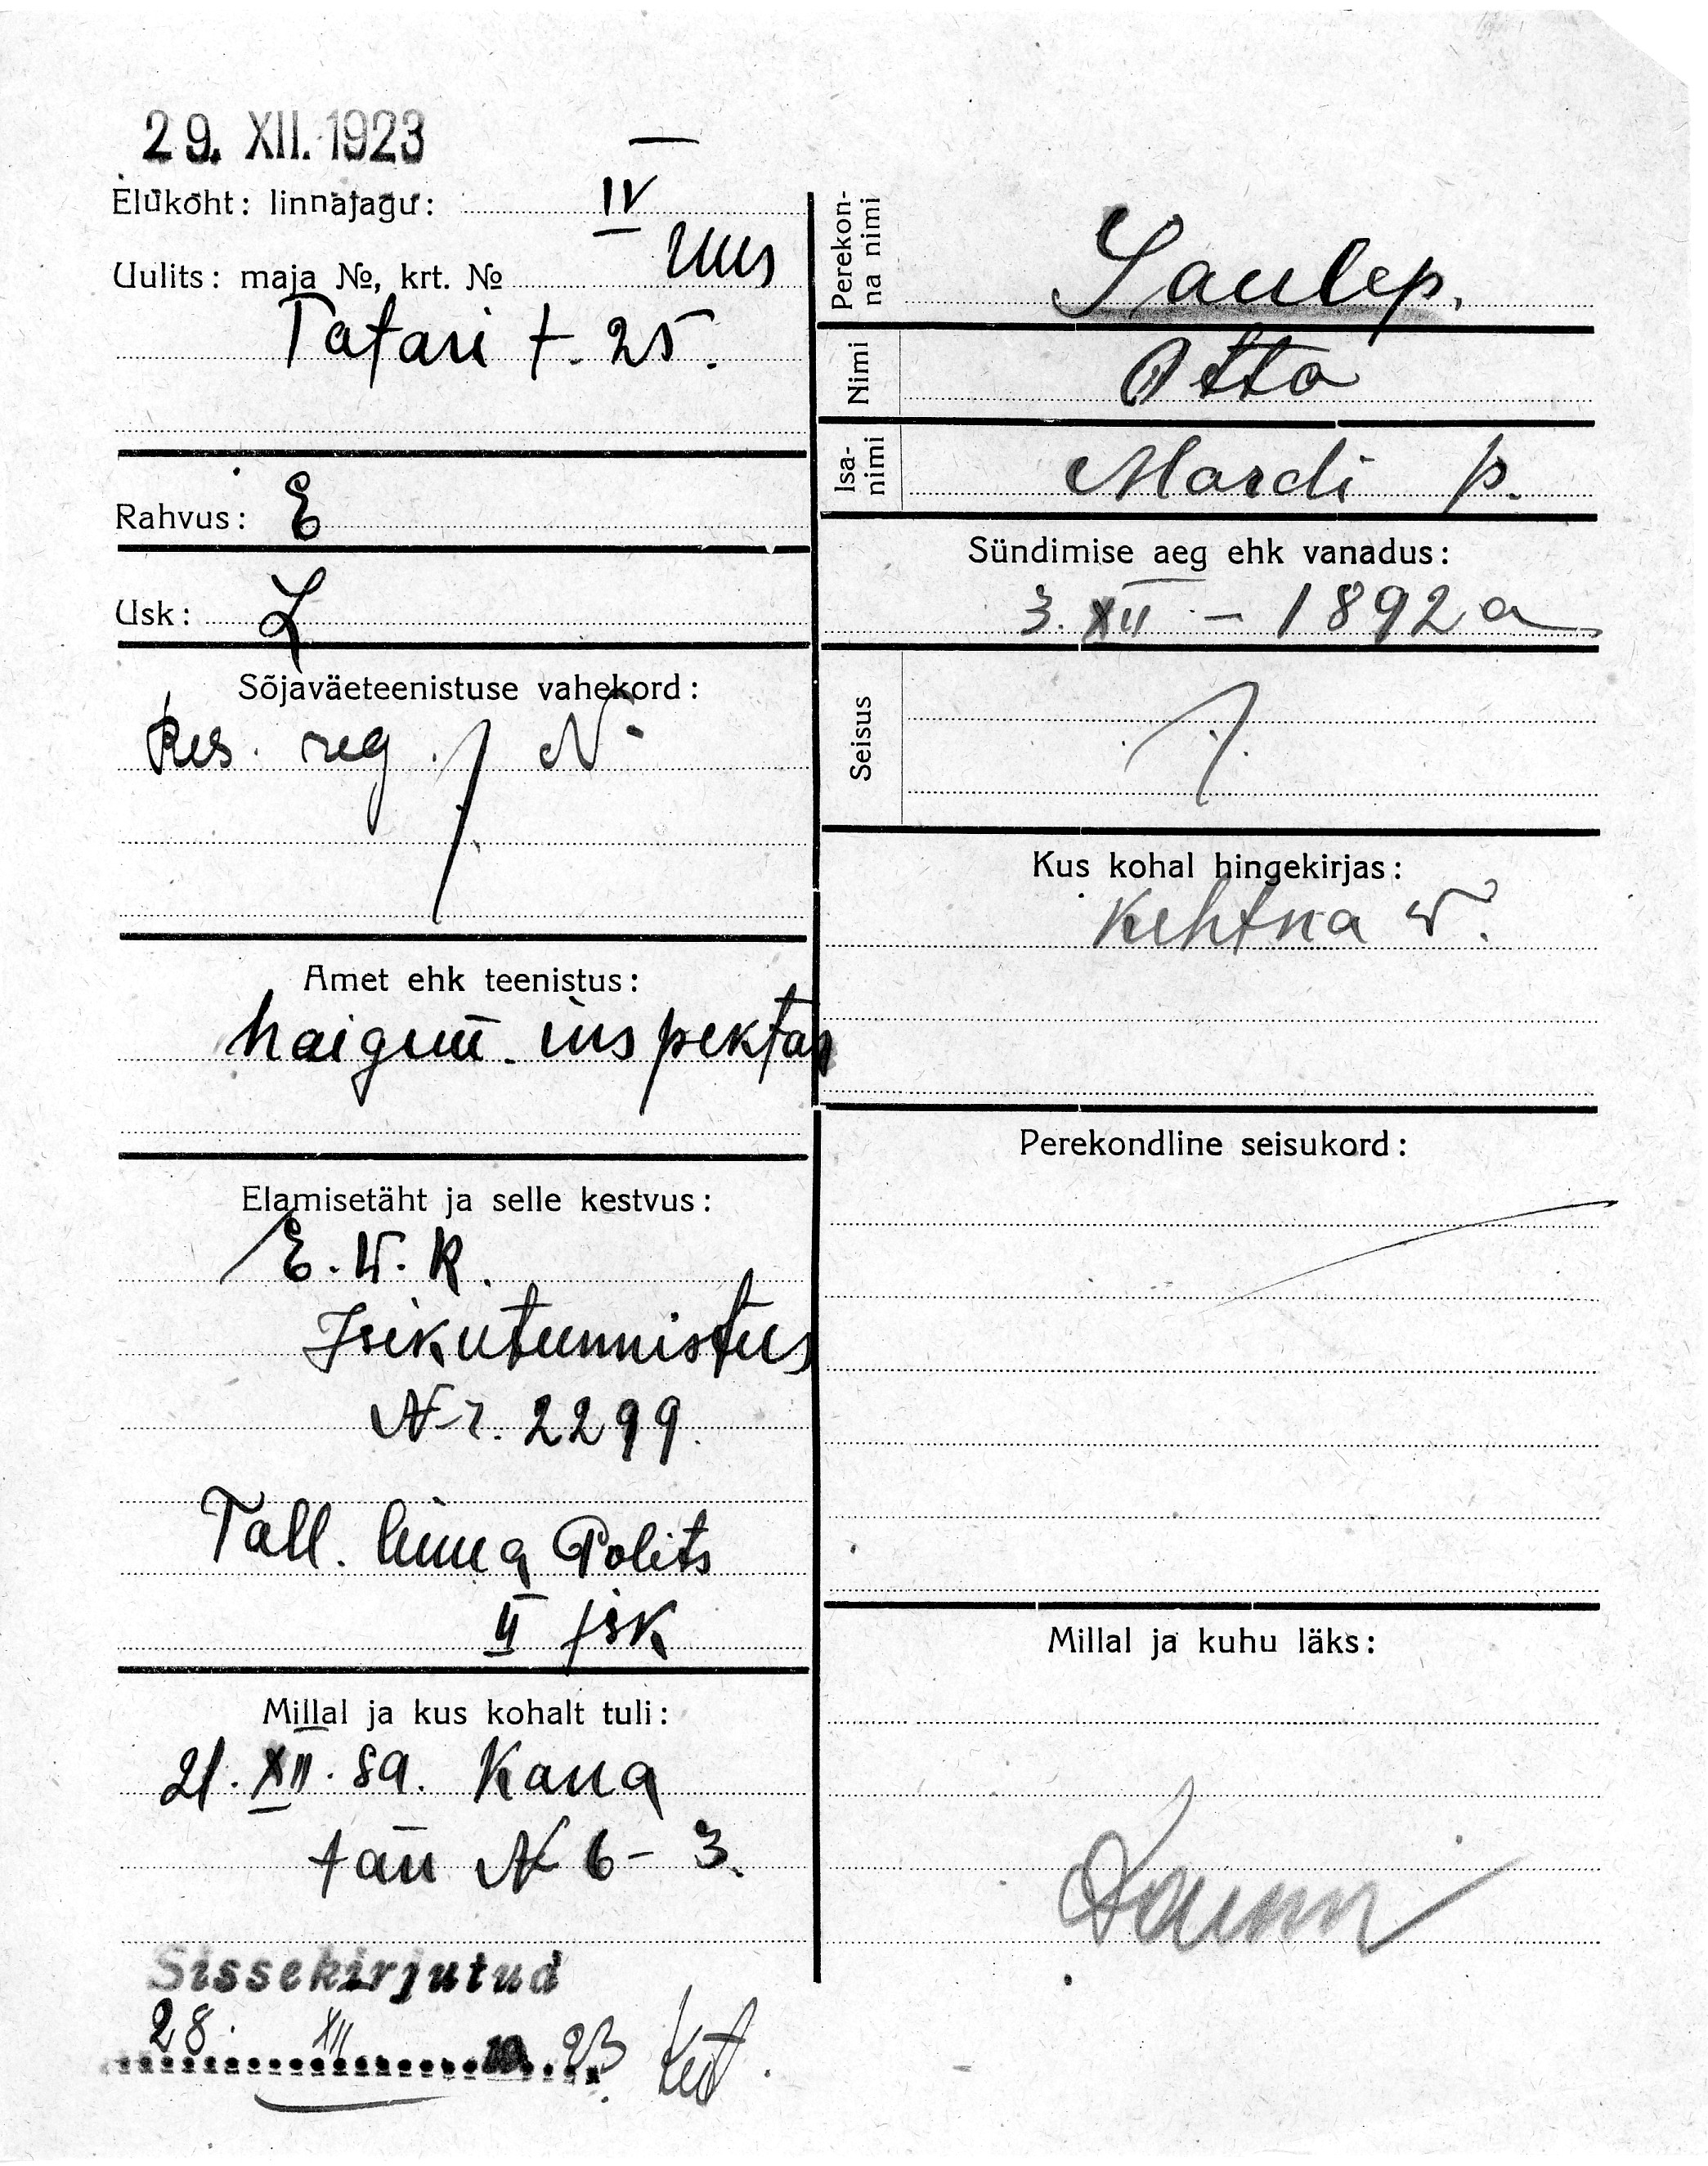 29. XII. 1923
Elukoht: linnajagu: IV
Uulits: maja №, krt. № Uus
Tatari t. 25.
Rahvus: E
Usk: L
Sõjaväeteenistuse vahekord:
Res. reg. N
Amet ehk teenistus:
haigem. inspektor
Elamisetäht ja selle kestvus:
E. W. R.
Isikutunnistus
Nr. 2299.
Tall. linna Polits
II jsk
Millal ja kus kohalt tuli:
21. XII. sa. Kana
tän N 6 - 3.
Sissekirjutud
28. XII 19.23
Perekon-
na nimi
Saulep.
Nimi Otto
Isa-
nimi
Mardi p.
Sündimise aeg ehk vanadus:
3. XII - 1892 a
Seisus
Kus kohal hingekirjas:
Kehtna v.
Perekondline seisukord:
Millal ja kuhu läks: